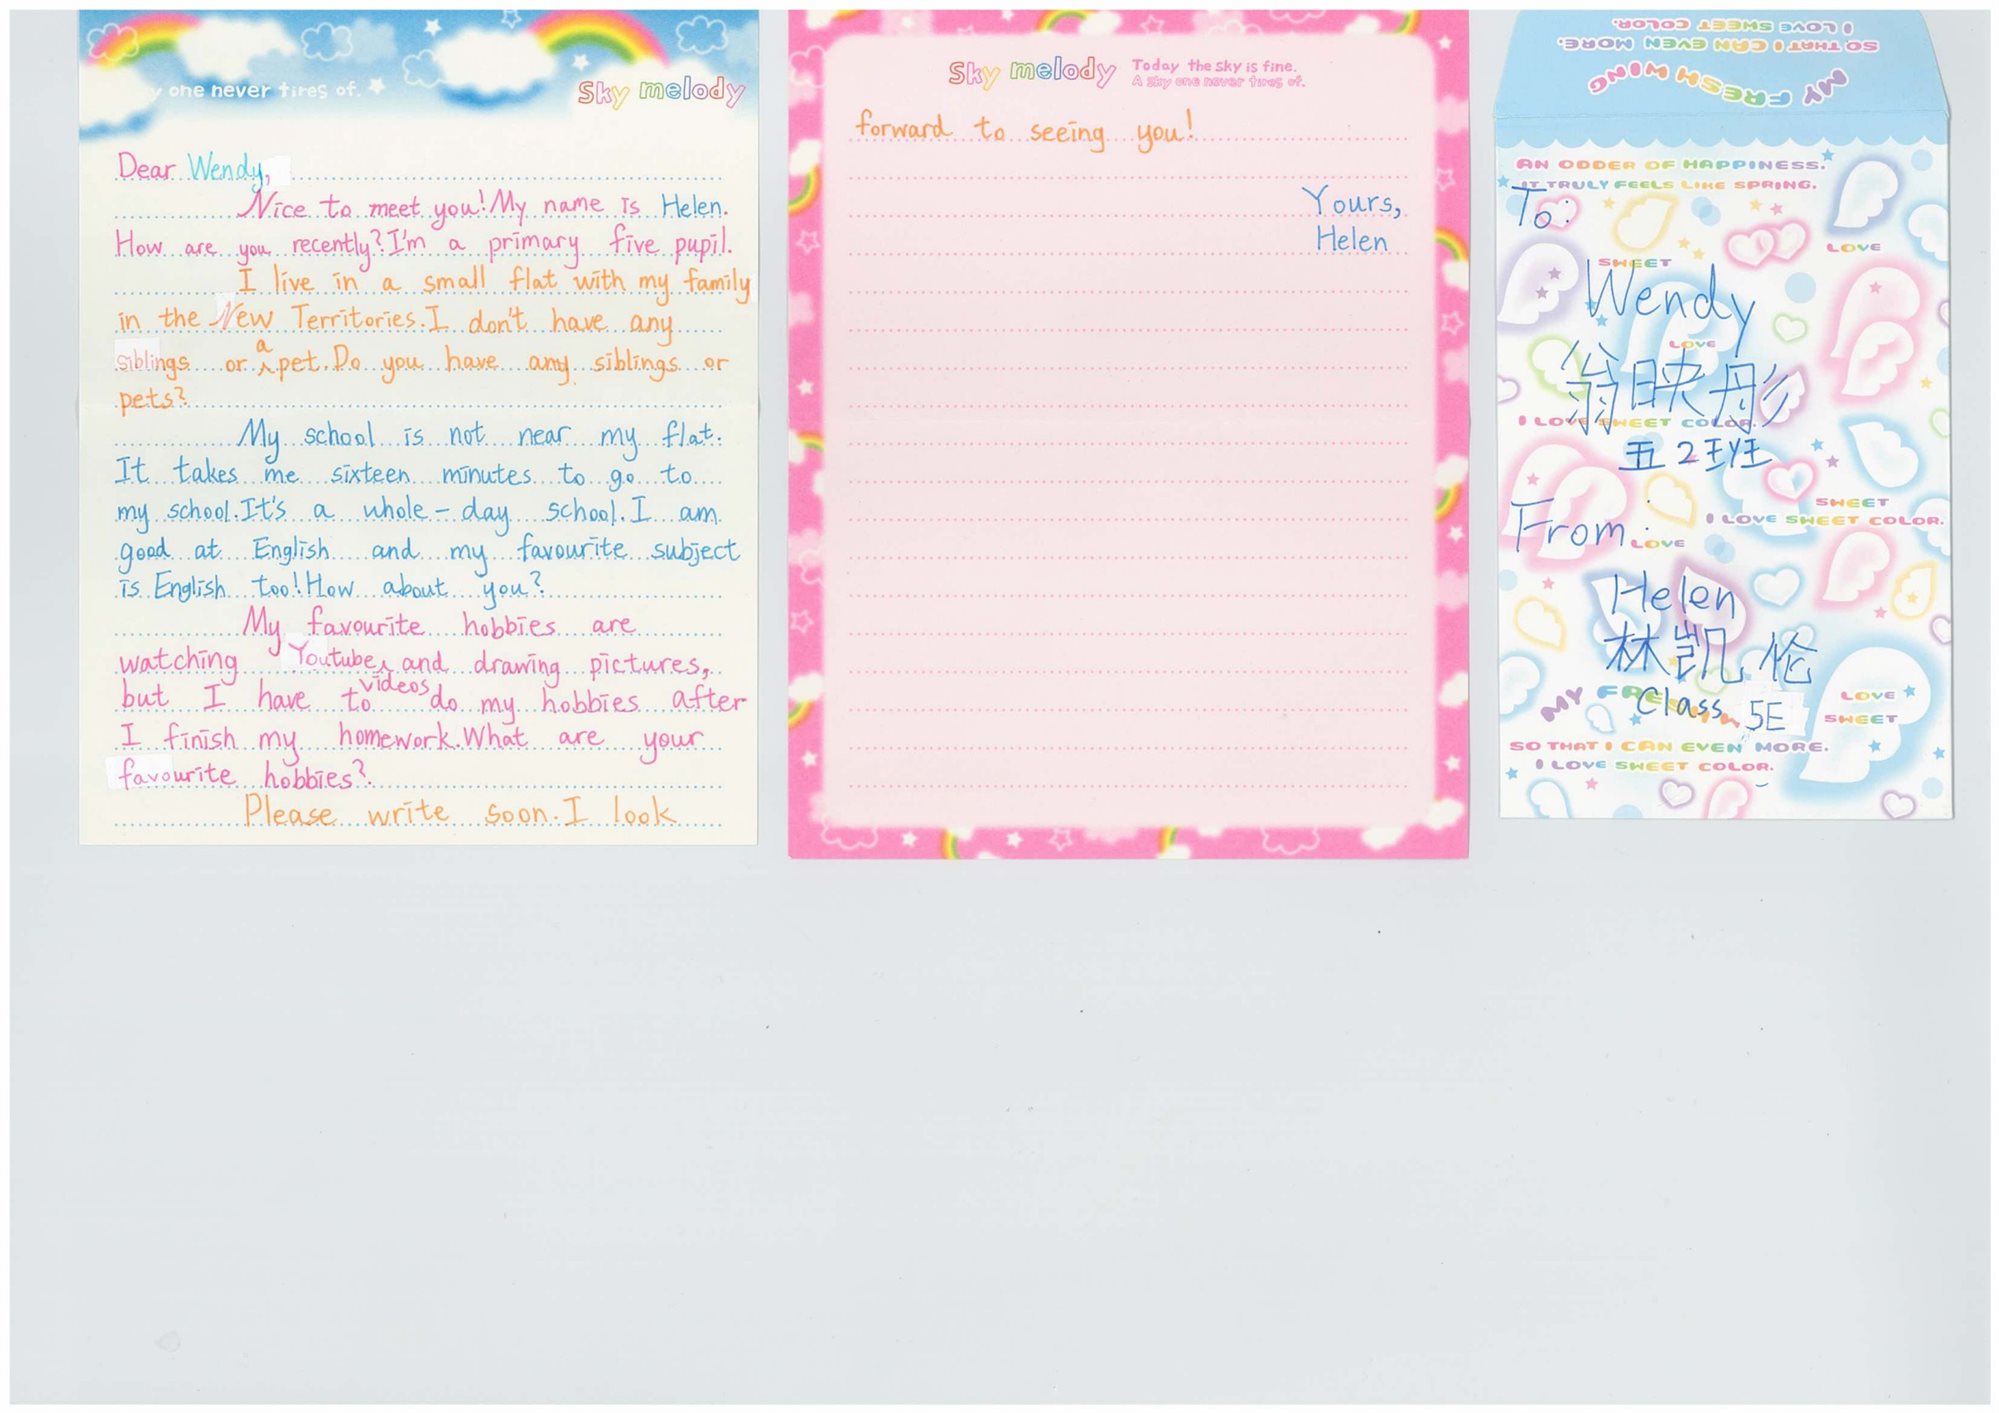 y one never tires of.
Sky melody
Dear Wendy,
Nice to meet you! My name is Helen.
How are you recently? I'm a primary five pupil.
I live in a small flat with my family
in the New Territories. I don't have any
siblings or a pet. Do you have any siblings or
pets?
My school is not near my flat.
It takes me sixteen minutes to go to
my school. It's a whole-day school. I am
good at English and my favourite subject
is English too! How about you?
My favourite hobbies are
watching Youtube videos and drawing pictures,
but I have to do my hobbies after
I finish my homework. What are your
favourite hobbies?
Please write soon. I look
Sky melody
Today the sky is fine.
A sky one never tires of.
forward to seeing you!
Yours,
Helen
MY FRESH WING
SO THAT I CAN EVEN MORE.
I LOVE SWEET COLOR.
AN ODDER OF HAPPINESS.
IT TRULY FEELS LIKE SPRING.
To:
LOVE
SWEET
Wendy
LOVE
翁映彤
I LOVE SWEET COLOR.
五2班
SWEET
I LOVE SWEET COLOR.
From:
LOVE
Helen
林凯伦
MY FRESH WING
LOVE
Class 5E
SWEET
SO THAT I CAN EVEN MORE.
I LOVE SWEET COLOR.